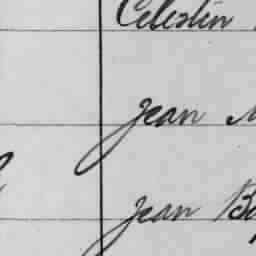 Celestin
Jean
Jean Ba